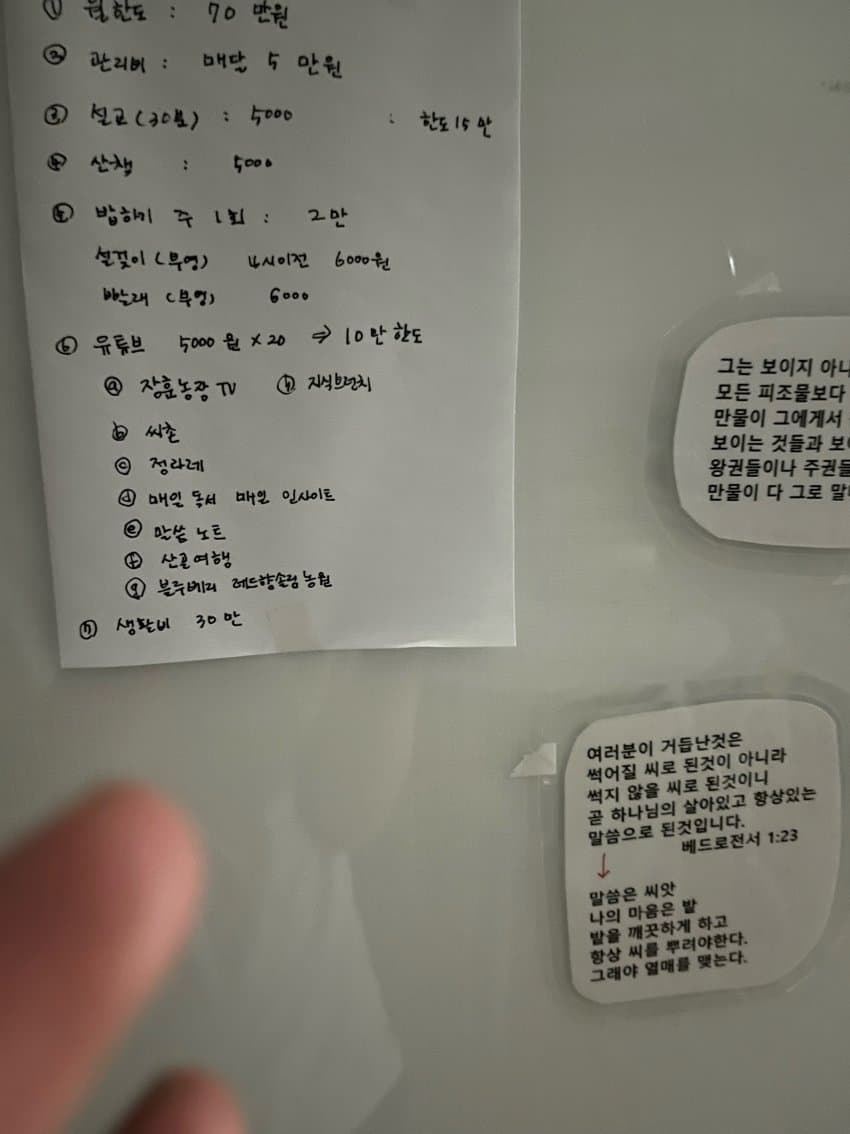 ① 월한도 : 70 만원
② 관리비 : 매달 5 만원
③ 설교(30분) : 5000 : 한도 15 만
④ 산책 : 5000
⑤ 밥하기 주 1회 : 2만
설겆이 (부엌) 4시이전 6000원
빨래 (부엌) 6000
⑥ 유튜브 5000 원 × 20 ⇒ 10 만 한도
ⓐ 장훈농장 TV ⓗ 지식브런치
ⓑ 씨촌
ⓒ 정라레
ⓓ 매일 독서 매일 인사이트
ⓔ 말씀 노트
ⓕ 산골여행
ⓖ 블루베리 레드향솔림농원
⑦ 생활비 30 만
그는 보이지 아니
모든 피조물보다
만물이 그에게서
보이는 것들과 보이
왕권들이나 주권들
만물이 다 그로 말미
여러분이 거듭난것은
썩어질 씨로 된것이 아니라
썩지 않을 씨로 된것이니
곧 하나님의 살아있고 항상있는
말씀으로 된것입니다.
베드로전서 1:23
↓
말씀은 씨앗
나의 마음은 밭
밭을 깨끗하게 하고
항상 씨를 뿌려야한다.
그래야 열매를 맺는다.